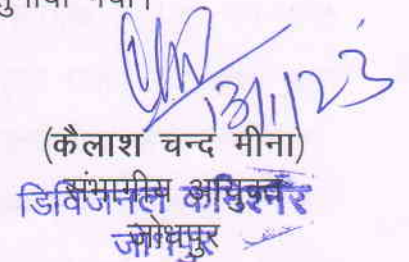 सुनाया गया।
13/1/23
(कैलाश चन्द मीना)
संभागीय आयुक्त
डिविजनल कमिश्नर
जोधपुर
जोधपुर